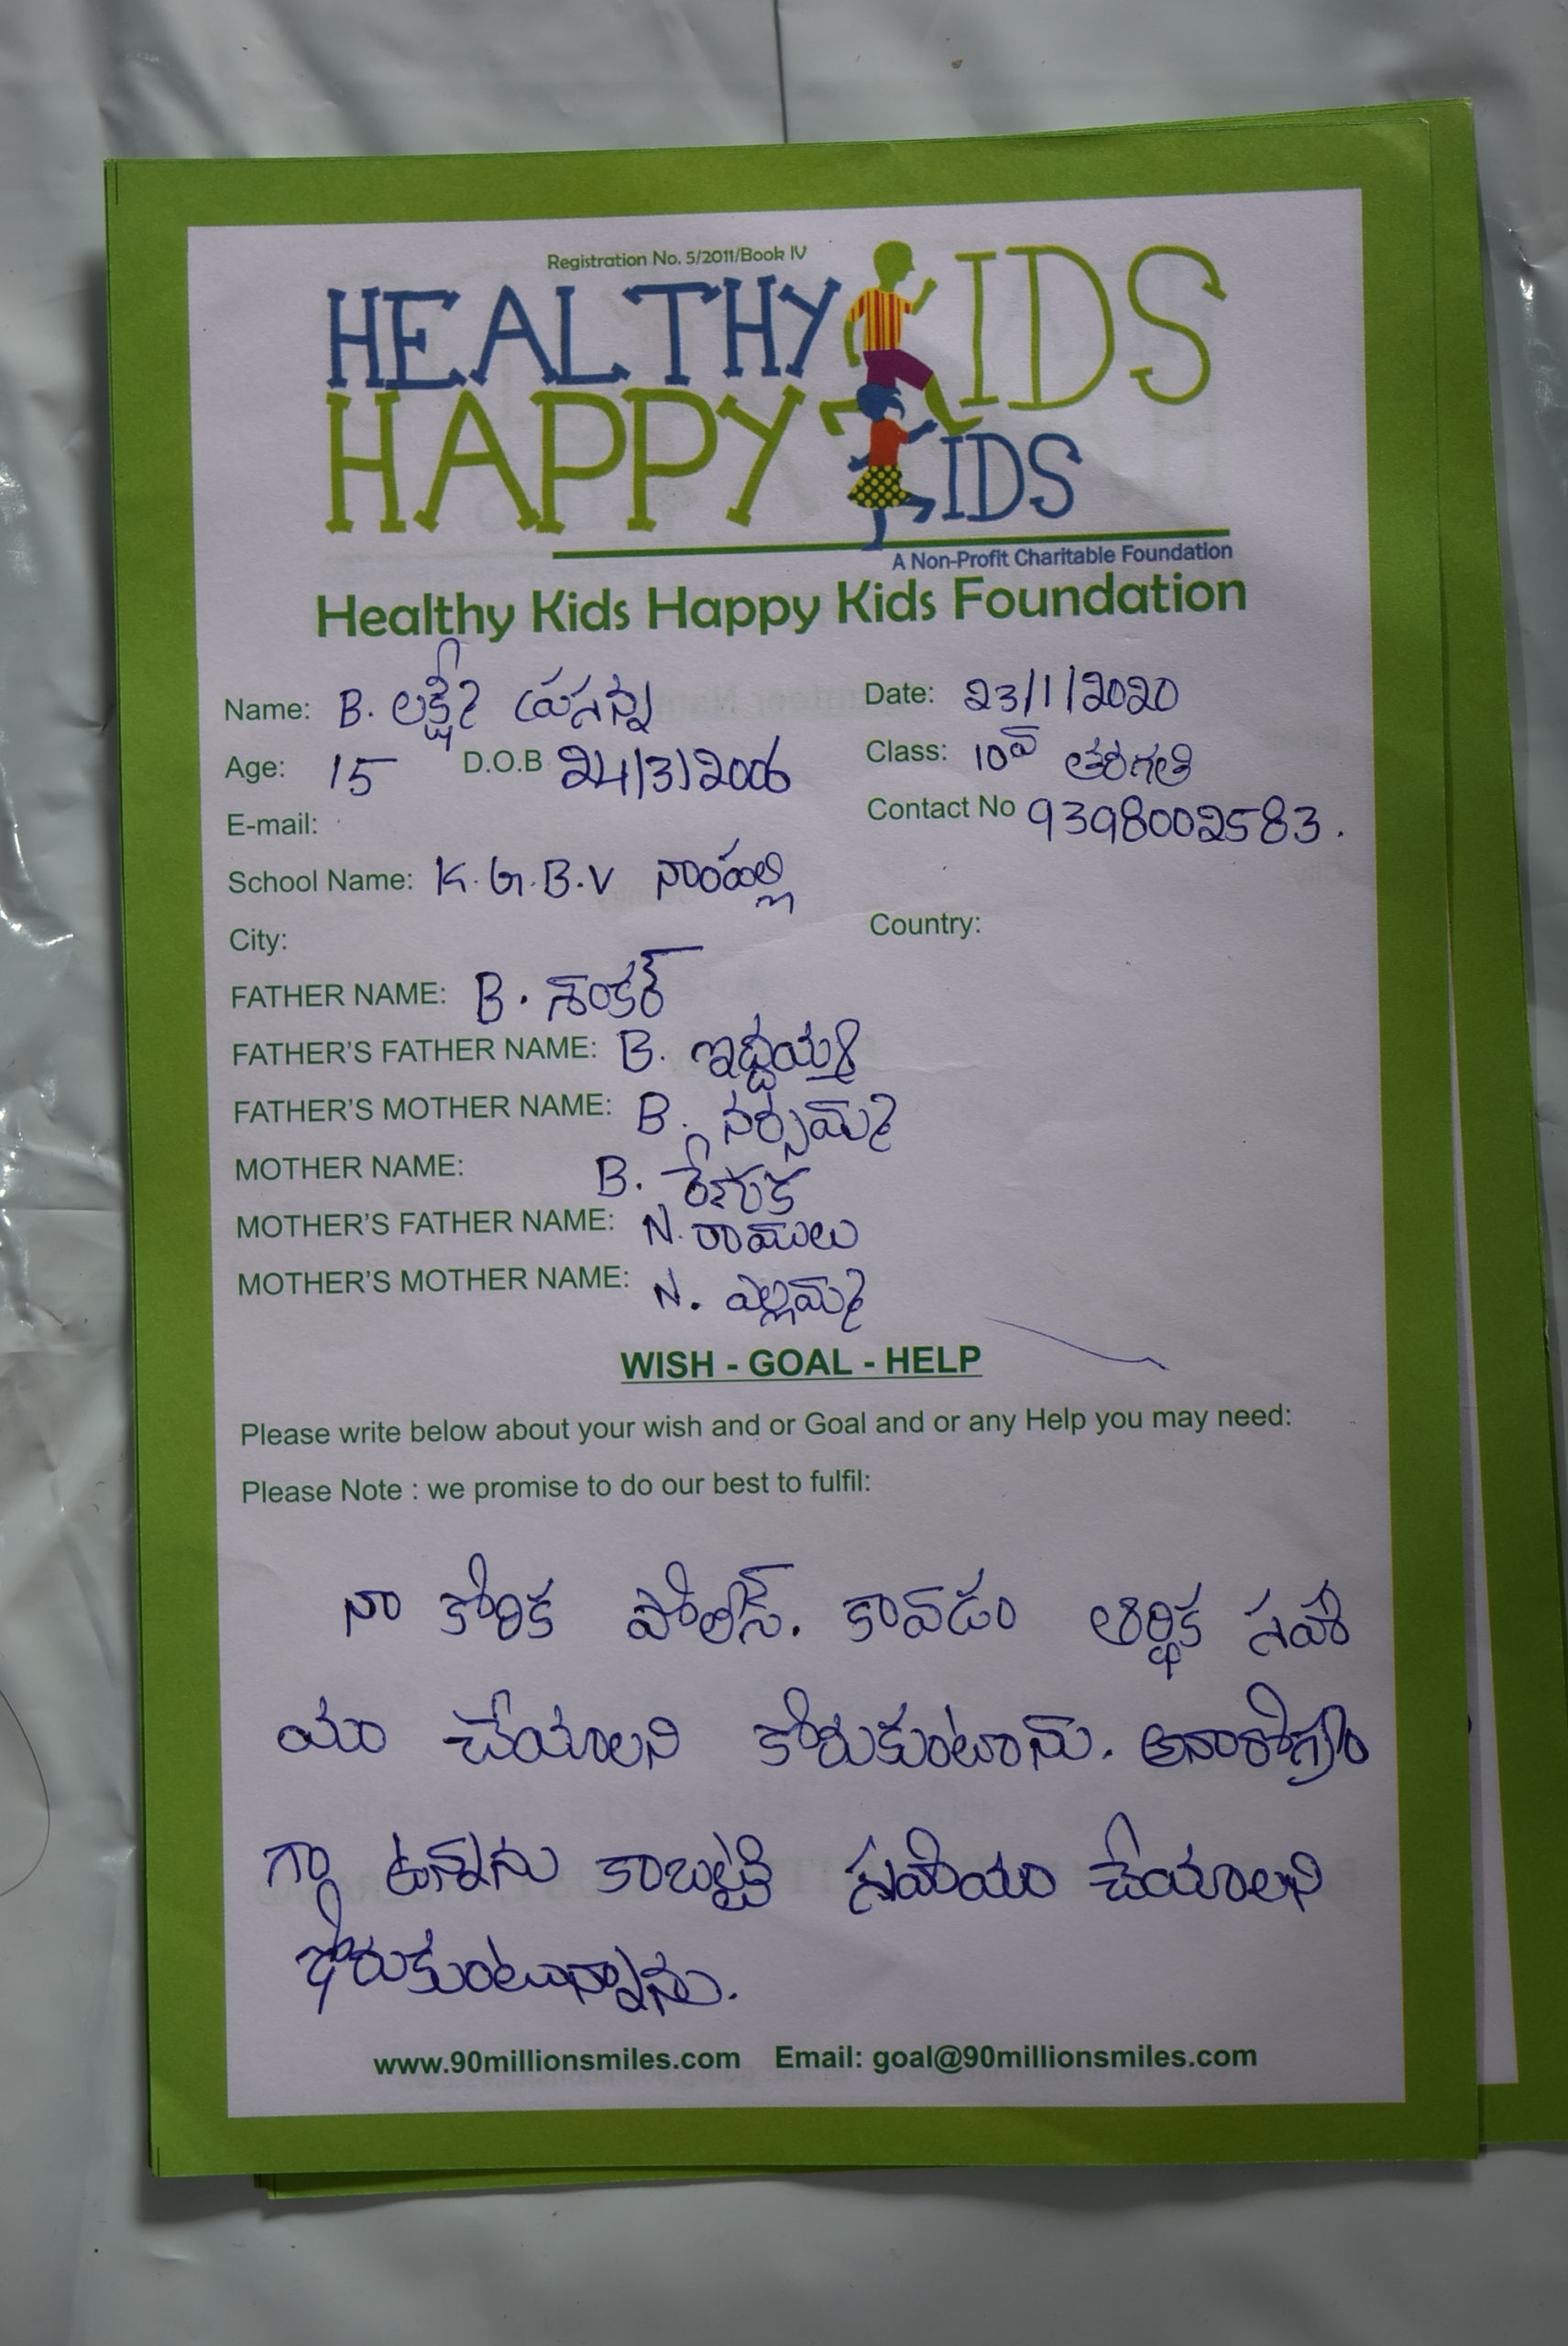 Registration No. 5/2011/Book IV
HEALTHY KIDS
HAPPY KIDS
A Non-Profit Charitable Foundation
Healthy Kids Happy Kids Foundation
Name: B. లక్ష్మీ ప్రసన్న Date: 23/1/2020
Age: 15 D.O.B 24/3/2006 Class: 10వ తరగతి
E-mail: Contact No 9398002583.
School Name: K.G.B.V నాంపల్లి
City: Country:
FATHER NAME: B. శంకర్
FATHER'S FATHER NAME: B.
FATHER'S MOTHER NAME: B. నర్సమ్మ
MOTHER NAME: B. రేణుక
MOTHER'S FATHER NAME: N. రాములు
MOTHER'S MOTHER NAME: N. ఎల్లమ్మ
WISH - GOAL - HELP
Please write below about your wish and or Goal and or any Help you may need:
Please Note : we promise to do our best to fulfil:
నా కోరిక పోలీస్. కావడం ఆర్థిక సహా
యం చేయాలని కోరుకుంటాను. అనారోగ్యం
గ్గా ఉన్నాను కాబట్టి సహాయం చేయాలని
కోరుకుంటున్నాను.
www.90millionsmiles.com Email: goal@90millionsmiles.com